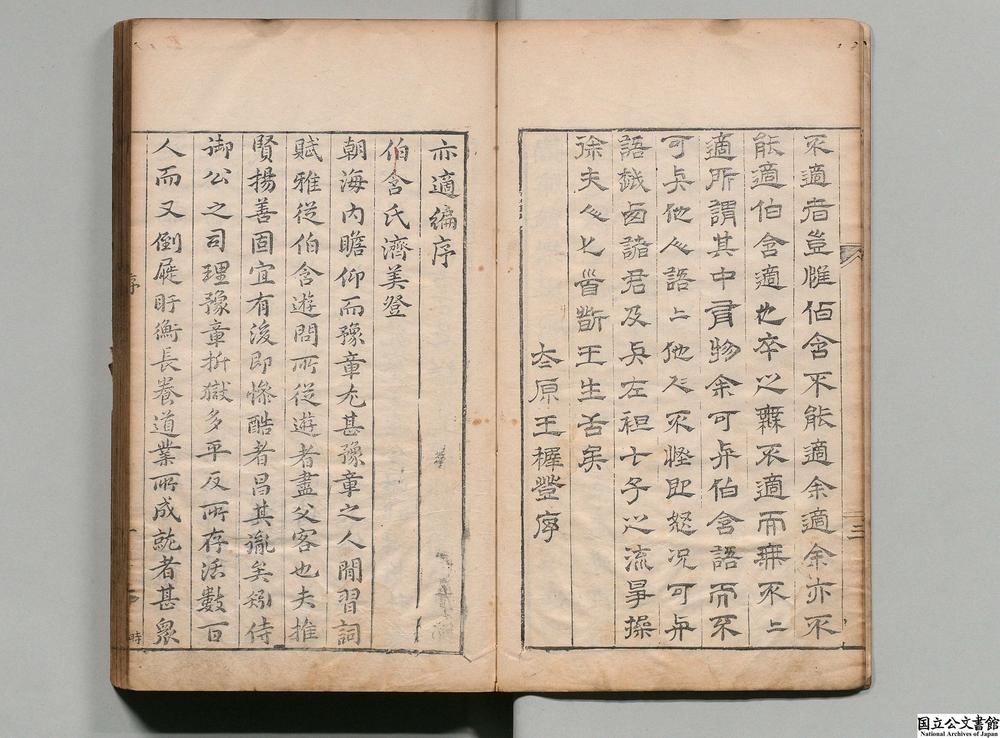 不適者豈惟伯含不能適余適余亦不
能適伯含適也卒之無不適而無不上
適所謂其中有物余可與伯含語而不
可與他人語上他人不怪即怒況可與
語鹵諸君及與左袒七子之流爭操
徐夫人匕首斷王生舌矣
太原王穉登序
三
亦適編序
伯含氏濟美登
朝海內瞻仰而豫章尤甚豫章之人閒習詞
賦雅從伯含遊問所從遊者盡父客也夫推
賢揚善固宜有後即慘酷者昌其胤矣矧侍
御公之司理豫章折獄多平反所存活數百
人而又倒屣盱衡長養道業所成就者甚眾
序
一
時
国立公文書館
National Archives of Japan